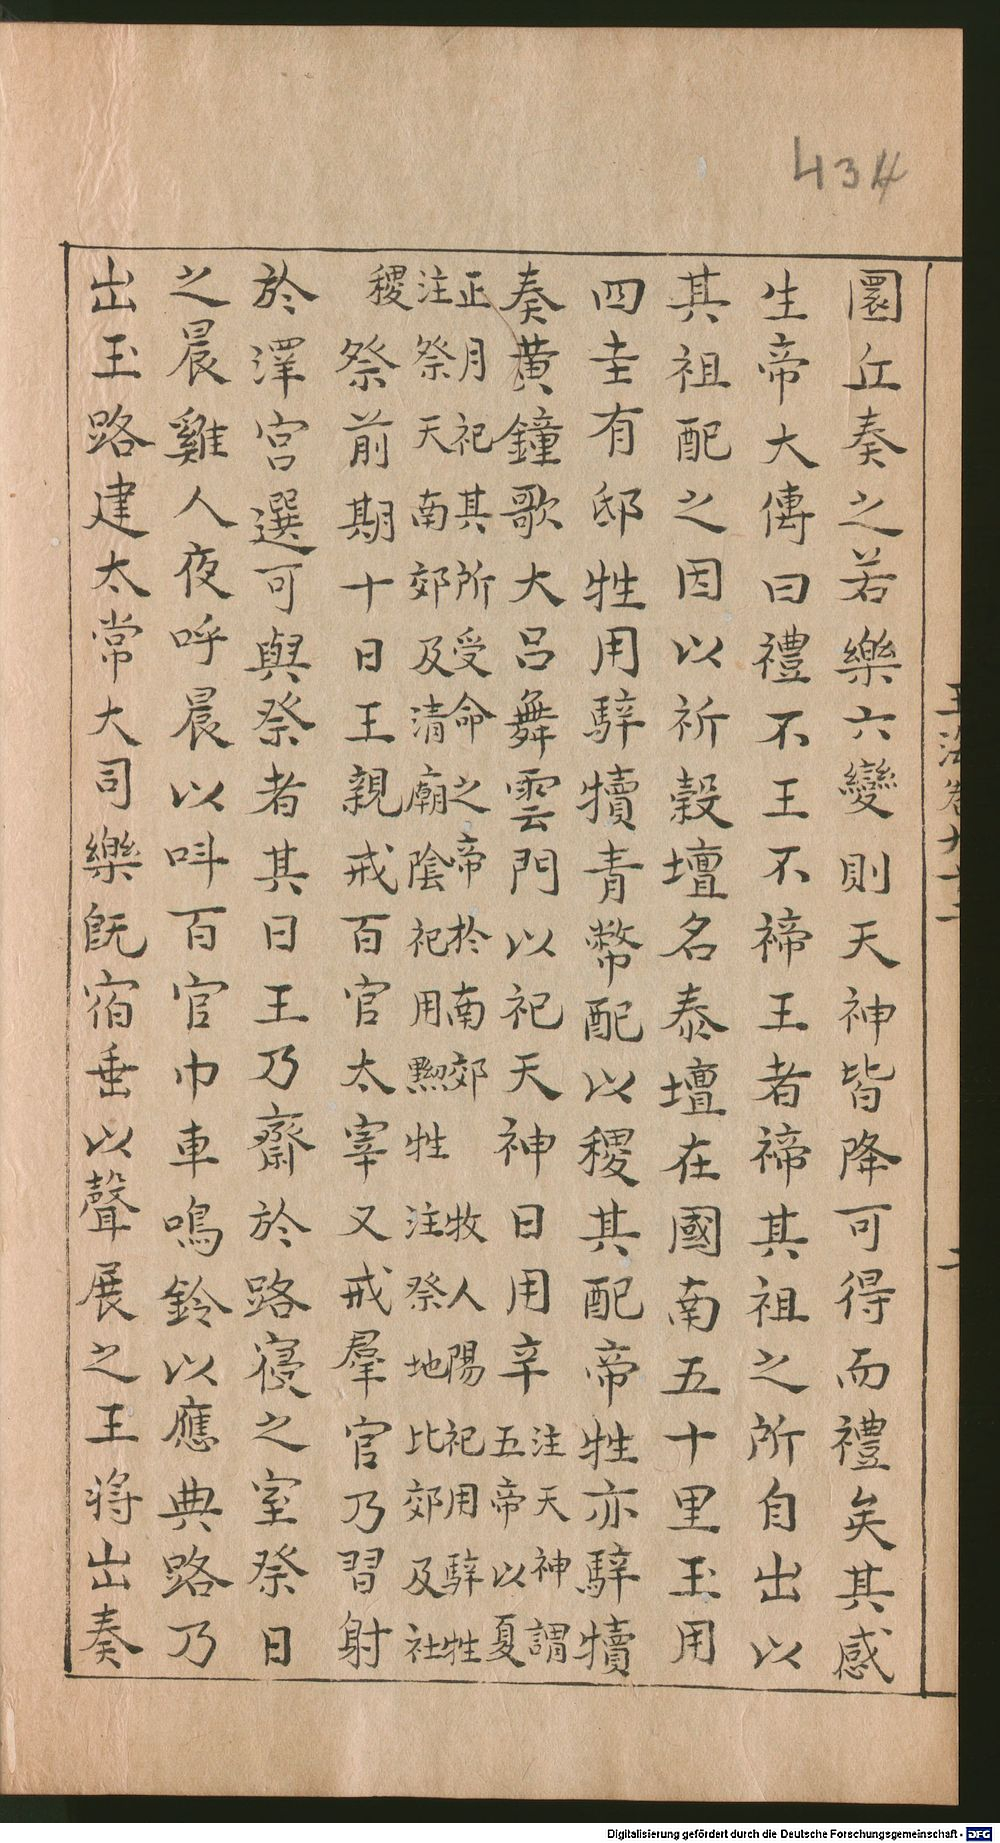 434
玉海卷九十二
二
圜丘奏之若樂六變則天神皆降可得而禮矣其感
生帝大傳曰禮不王不禘王者禘其祖之所自出以
其祖配之因以祈穀壇名泰壇在國南五十里玉用
四圭有邸牲用騂犢青幣配以稷其配帝牲亦騂犢
奏黃鐘歌大呂舞雲門以祀天神日用辛
注天神謂
五帝以夏
正月祀其所受命之帝於南郊牧人陽祀用騂牲
注祭天南郊及清廟陰祀用黝牲注祭地比郊及社
稷祭前期十日王親戒百官太宰又戒羣官乃習射
於澤宮選可與祭者其日王乃齋於路寢之室祭日
之晨雞人夜呼晨以呌百官巾車鳴鈴以應典路乃
出玉路建太常大司樂旣宿垂以聲展之王將出奏
Digitalisierung gefördert durch die Deutsche Forschungsgemeinschaft - DFG